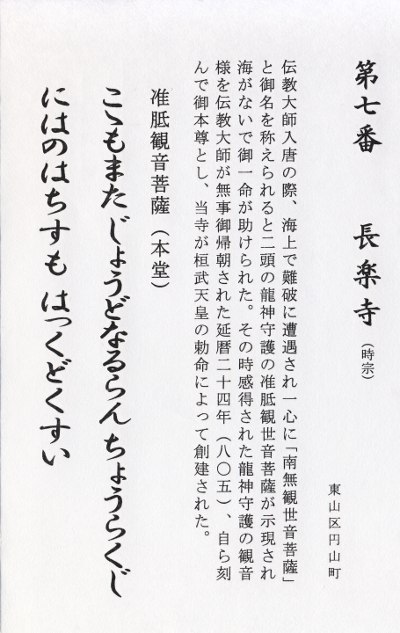 第七番　長楽寺（時宗）
東山区円山町
伝教大師入唐の際、海上で難破に遭遇され一心に「南無観世音菩薩」
と御名を称えられると二頭の龍神守護の准胝観世音菩薩が示現され
海がないで御一命が助けられた。その時感得された龍神守護の観音
様を伝教大師が無事御帰朝された延暦二十四年（八〇五）、自ら刻
んで御本尊とし、当寺が桓武天皇の勅命によって創建された。
准胝観音菩薩（本堂）
こゝもまた じょうどなるらん ちょうらくじ
にはのはちすも はっくどくすい